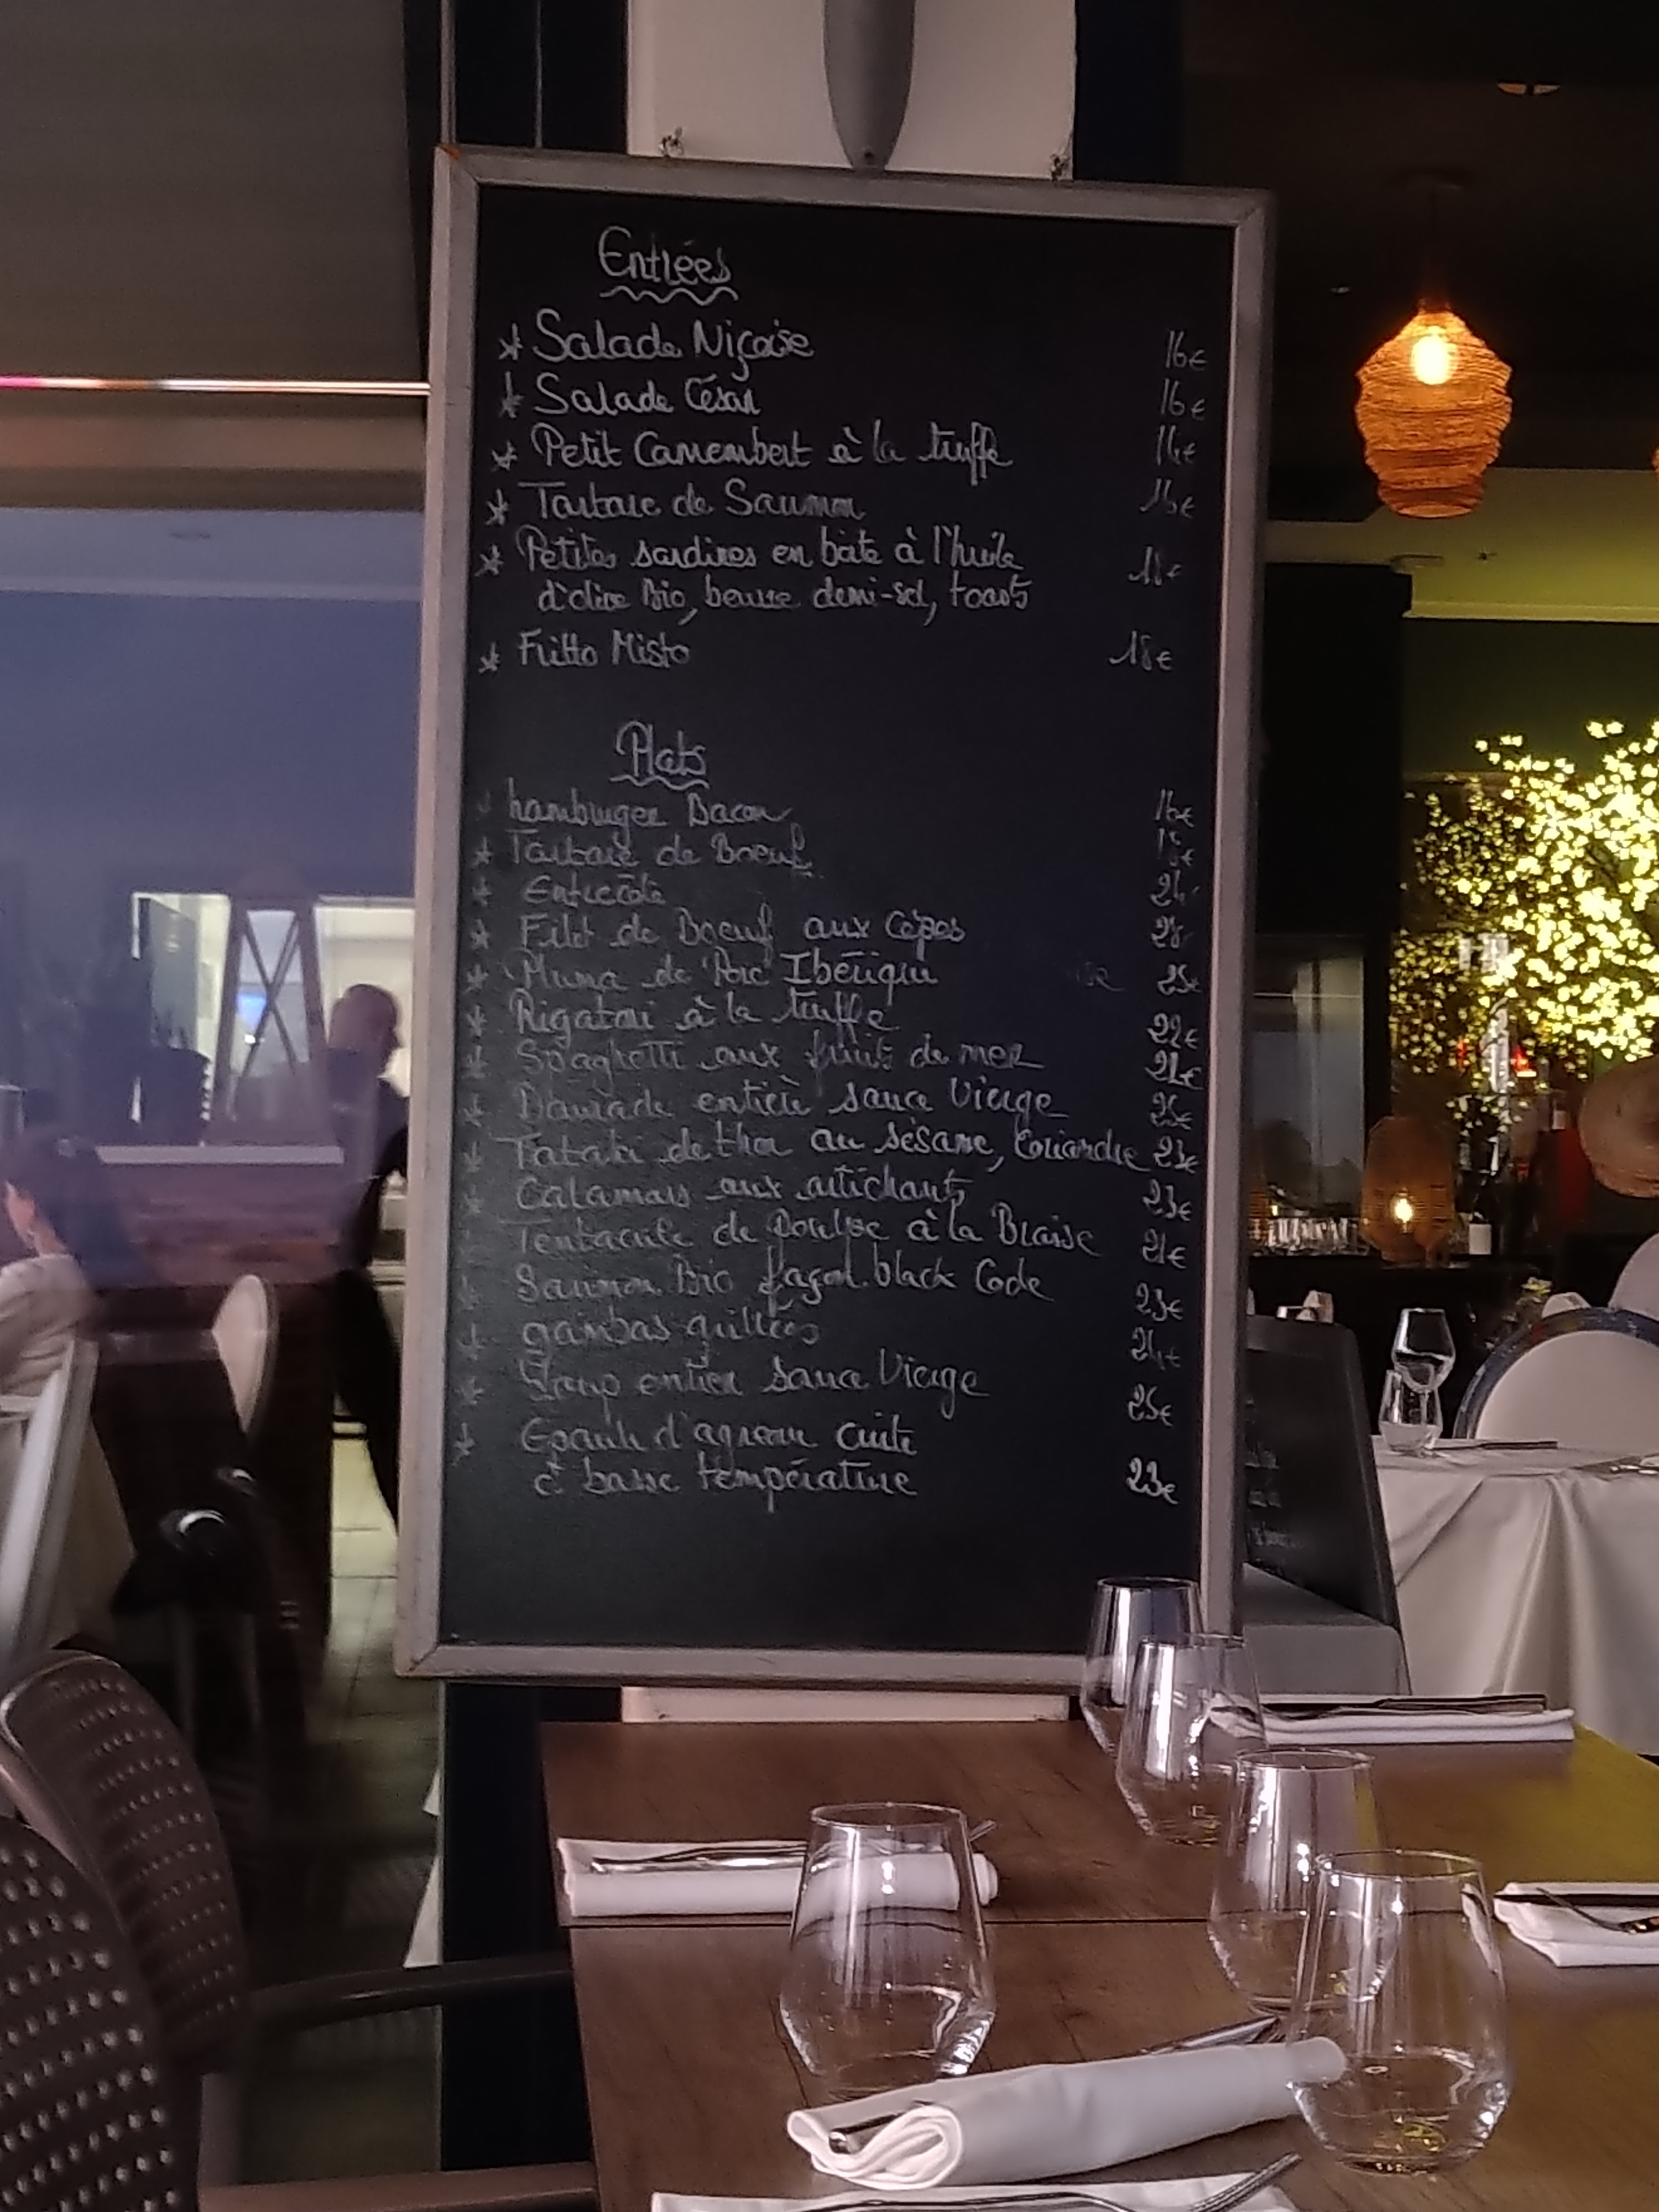 Entrées
* Salade Niçoise 16€
* Salade César 16€
* Petit Camembert à la truffe 14€
* Tartare de Saumon 16€
* Petites sardines en boite à l'huile
d'olive Bio, beurre demi-sel, toasts
* Fritto Misto 18€
Plats
hamburger Bacon 16€
* Tartare de Boeuf
* Entrecôte
* Filet de Boeuf aux Cèpes
* Pluma de Porc Ibérique 25€
* Rigatoni à la truffe 22€
* Spaghetti aux fruits de mer
* Daurade entière sauce Vierge 25€
* Tataki de thon au sésame, Coriandre 23€
* Calamars aux artichauts 23€
* Tentacule de Poulpe à la Braise 21€
* Saumon Bio façon black Code 23€
* gambas grillées 24€
* Loup entier sauce Vierge 25€
* Epaule d'agneau cuite
à basse température 23€